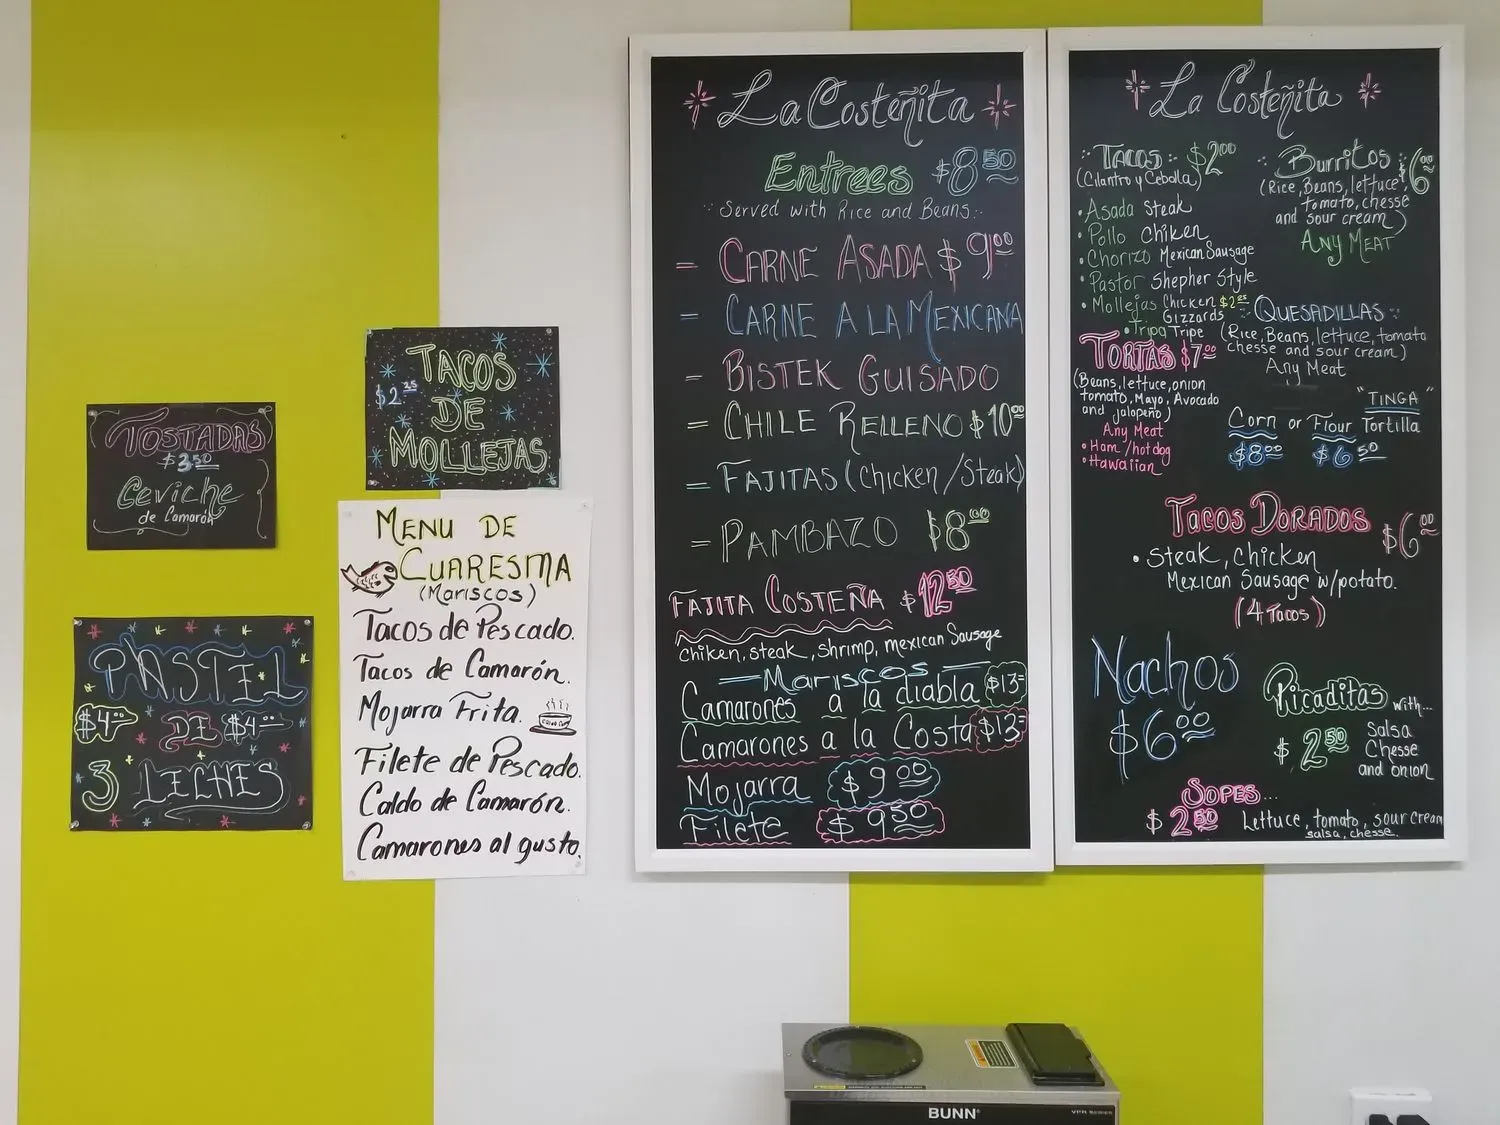 TOSTADAS
$3.50
Ceviche
de Camarón
TACOS
$2.25
DE
MOLLEJAS
PASTEL
$4.00 DE $4.00
3 LECHES
MENU DE
CUARESMA
(MARISCOS)
Tacos de Pescado.
Tacos de Camarón.
Mojarra Frita.
Filete de Pescado.
Caldo de Camarón.
Camarones al gusto.
La Costeñita
Entrees $8.50
Served with Rice and Beans
= CARNE ASADA $9.00
= CARNE A LA MEXICANA
- BISTEK GUISADO
= CHILE RELLENO $10.00
= FAJITAS (Chicken/Steak)
= PAMBAZO $8.00
FAJITA COSTEÑA $12.50
Chiken, steak, shrimp, mexican Sausage
Mariscos
Camarones a la diabla $13
Camarones a la Costa $13
Mojarra $9.00
Filete $9.50
La Costeñita
TACOS: $2.00
(Cilantro y Cebolla)
• Asada Steak
• Pollo Chiken
• Chorizo Mexican Sausage
• Pastor Shepher Style
• Mollejas Chicken $2.25
Gizzards
• Tripa Tripe
TORTAS $7.00
(Beans, lettuce, onion
tomato, Mayo, Avocado
and jalapeño)
Any Meat
• Ham/hot dog
• Hawaiian
Burritos $6.00
(Rice, Beans, lettuce,
tomato, chesse
and sour cream)
ANY MEAT
QUESADILLAS
(Rice, Beans, lettuce, tomato
chesse and sour cream)
Any Meat
"TINGA"
Corn or Flour Tortilla
$8.00 $6.50
TACOS DORADOS $6.00
• Steak, Chicken
Mexican Sausage w/potato.
(4 Tacos)
Nachos
$6.00
Picaditas with...
$2.50 Salsa
Chesse
and onion
SOPES...
$2.50 Lettuce, tomato, sour cream
salsa, chesse.
BUNN
VPR SERIES